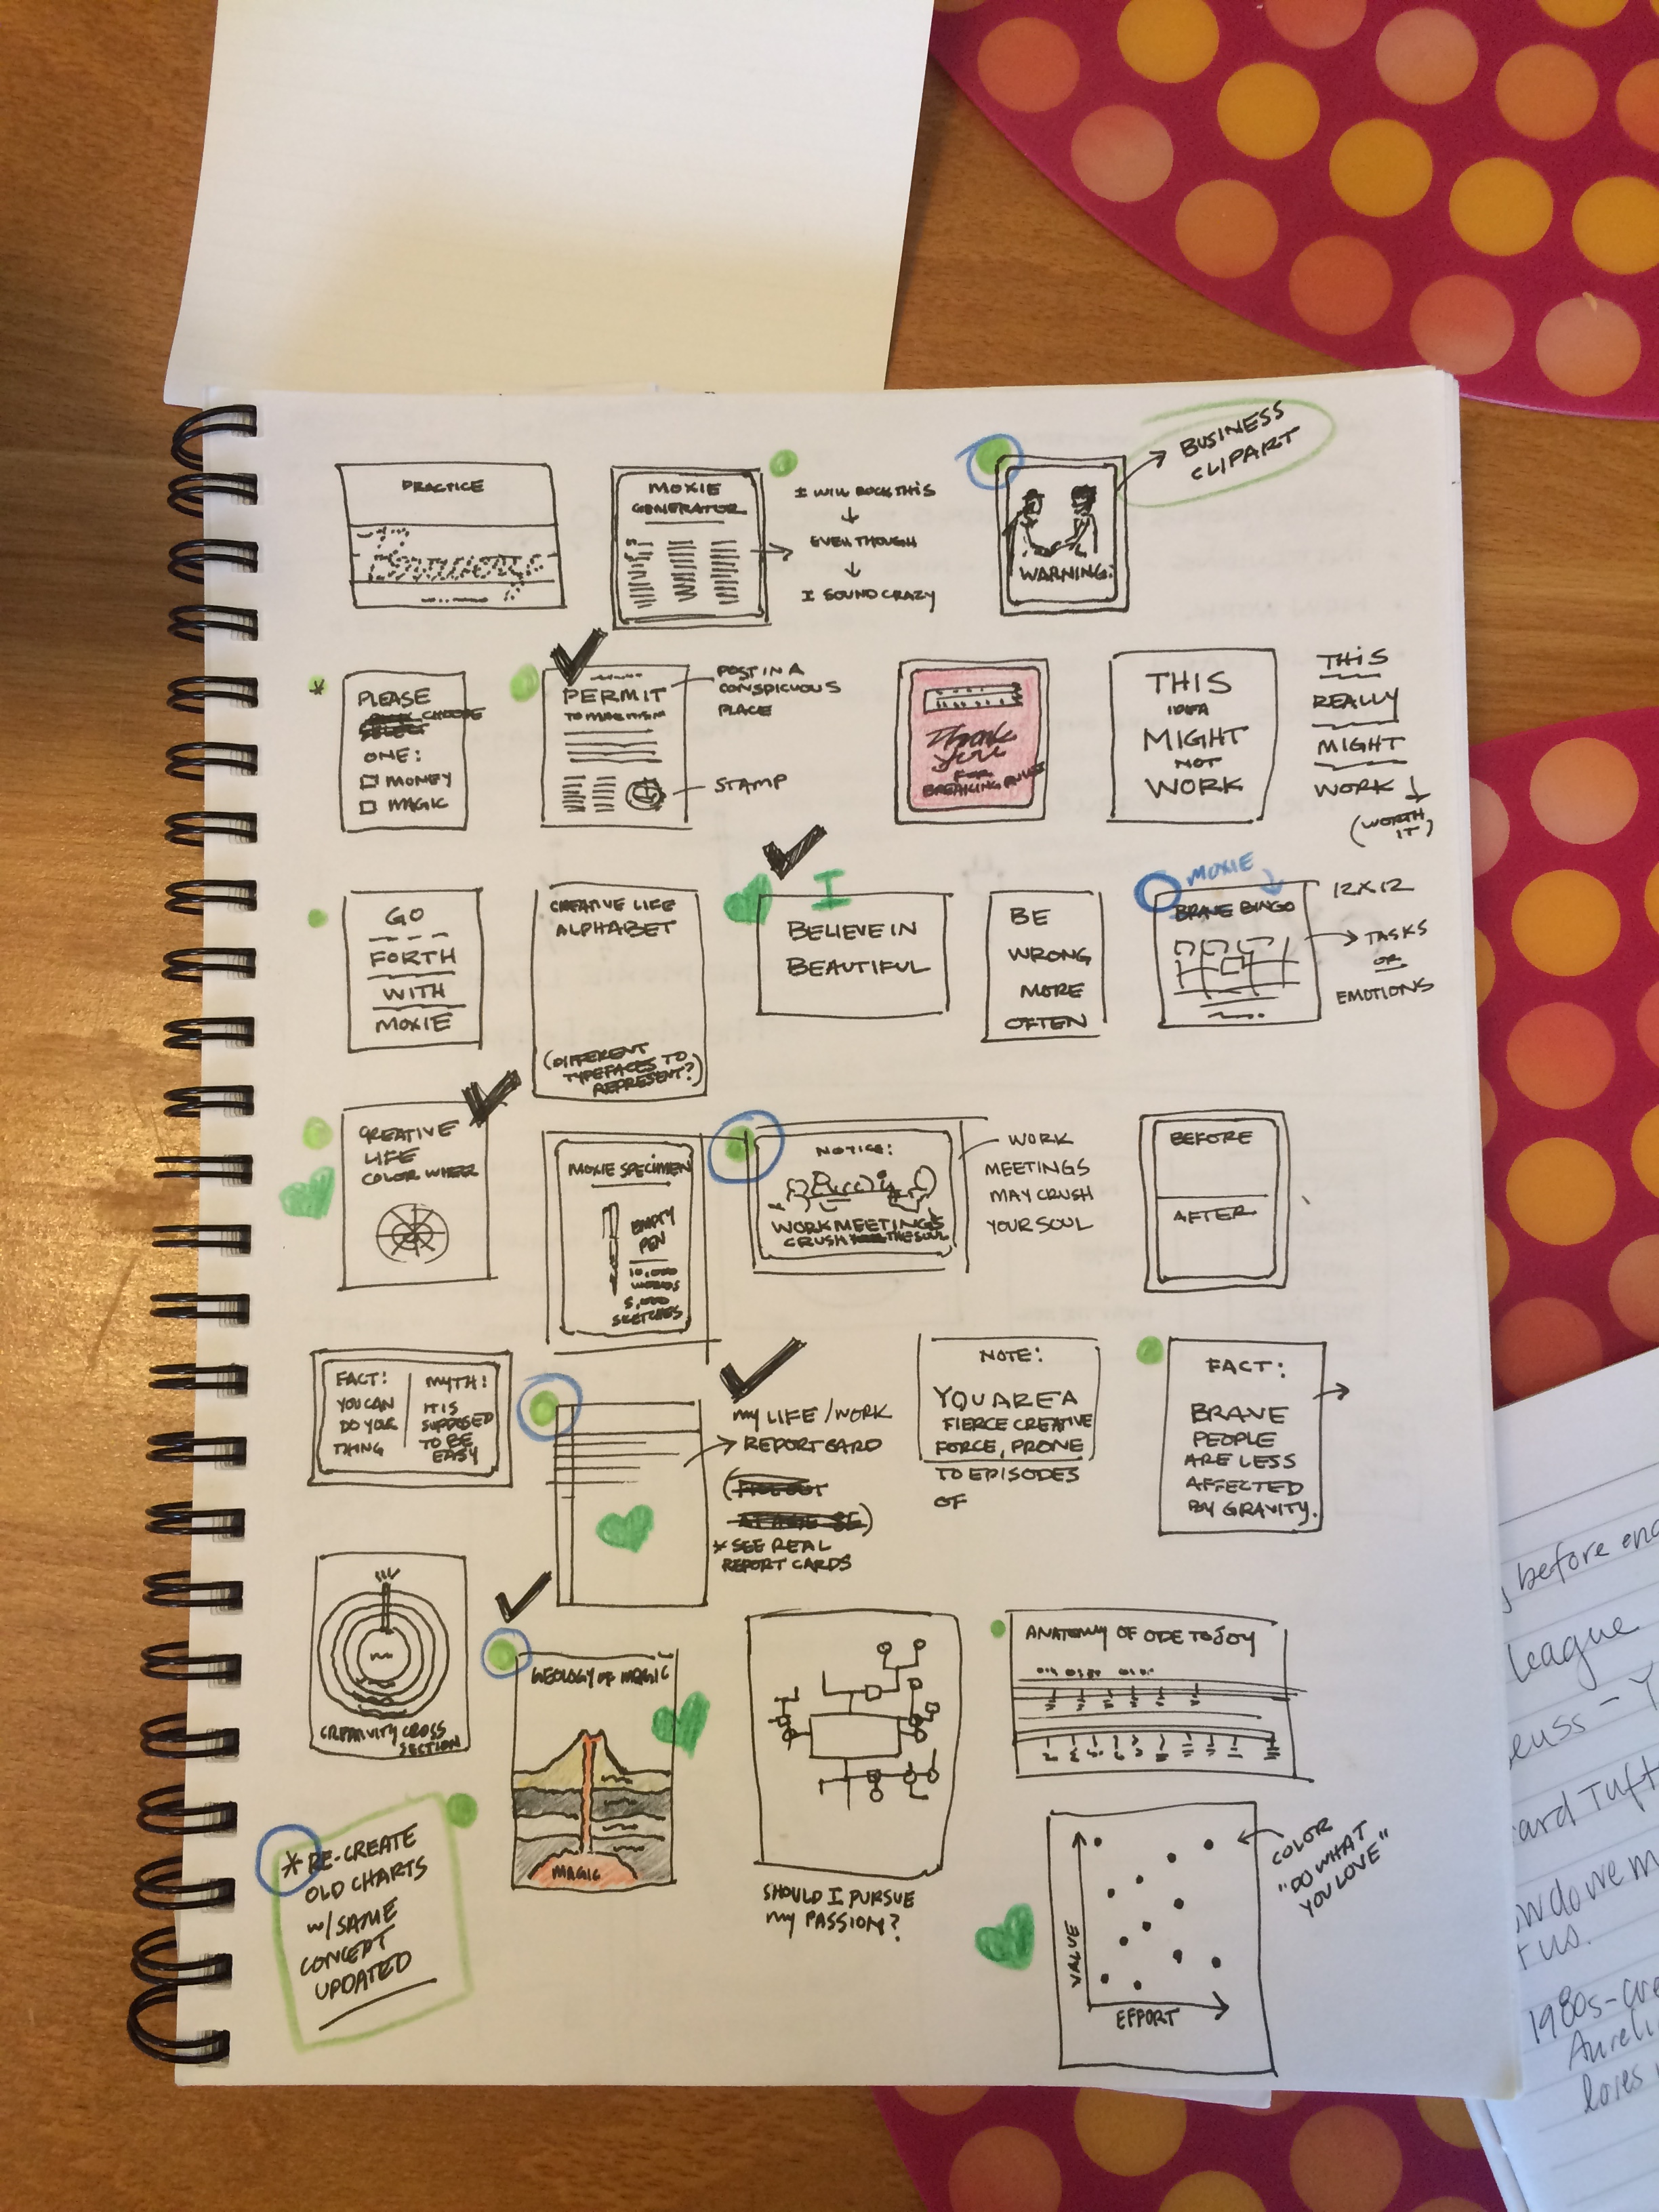 PRACTICE
MOXIE
GENERATOR
I WILL ROCK THIS
EVEN THOUGH
I SOUND CRAZY
WARNING:
BUSINESS
CLIPART
* PLEASE
CHOOSE
ONE:
MONEY
MAGIC
PERMIT
POST IN A
CONSPICUOUS
PLACE
STAMP
Thank
you
FOR
BREAKING RULES
THIS
IDEA
MIGHT
NOT
WORK
THIS
REALLY
MIGHT
WORK
(WORTH
IT)
GO
FORTH
WITH
MOXIE
CREATIVE LIFE
ALPHABET
(DIFFERENT
TYPEFACES TO
REPRESENT?)
I
BELIEVE IN
BEAUTIFUL
BE
WRONG
MORE
OFTEN
MOXIE
BRAVE BINGO
12 X 12
TASKS
OR
EMOTIONS
CREATIVE
LIFE
COLOR WHEEL
MOXIE SPECIMEN
EMPTY
PEN
10,000
WORDS
5,000
SKETCHES
NOTICE:
WORK MEETINGS
CRUSH THE SOUL
WORK
MEETINGS
MAY CRUSH
YOUR SOUL
BEFORE
AFTER
FACT:
YOU CAN
DO YOUR
THING
MYTH:
IT IS
SUPPOSED
TO BE
EASY
MY LIFE/WORK
REPORT CARD
* SEE REAL
REPORT CARDS
NOTE:
YOU ARE A
FIERCE CREATIVE
FORCE, PRONE
TO EPISODES
OF
FACT:
BRAVE
PEOPLE
ARE LESS
AFFECTED
BY GRAVITY.
CREATIVITY CROSS
SECTION
GEOLOGY OF MAGIC
MAGIC
SHOULD I PURSUE
MY PASSION?
ANATOMY OF ODE TO JOY
* RE-CREATE
OLD CHARTS
W/SAME
CONCEPT
UPDATED
VALUE
EFFORT
COLOR
"DO WHAT
YOU LOVE"
before
league
1980s-
loves